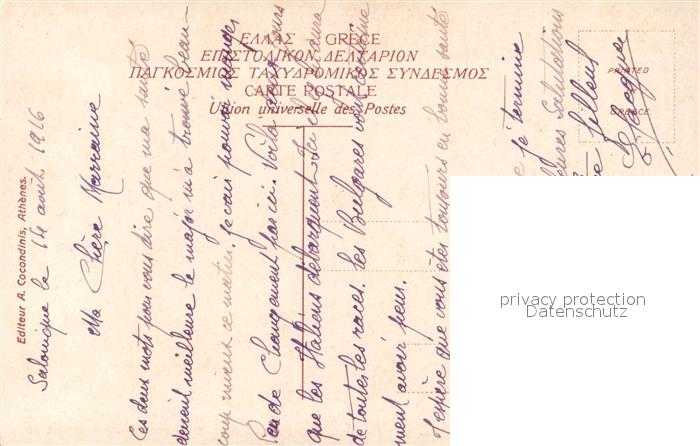 ΕΛΛΑΣ – GRÈCE
ΕΠΙΣΤΟΛΙΚΟΝ ΔΕΛΤΑΡΙΟΝ
ΠΑΓΚΟΣΜΙΟΣ ΤΑΧΥΔΡΟΜΙΚΟΣ ΣΥΝΔΕΣΜΟΣ
CARTE POSTALE
Union universelle des Postes
PRINTED
IN
GREECE
Editeur A. Cocondinis, Athènes.
Salonique le 14 août 1916
Ma Chère Marraine
Ces deux mots pour vous dire que ma santé
devient meilleure le major m'a trouvé beau-
coup mieux ce matin. Je vais pouvoir manger
Peu de changement par ici. Voilà deux jours
que les Italiens débarquent
de toutes les races. les Bulgares vont certaine
ment avoir peur.
J'espère que vous êtes toujours en bonne santé
je termine
Salutations
filleul
privacy protection
Datenschutz